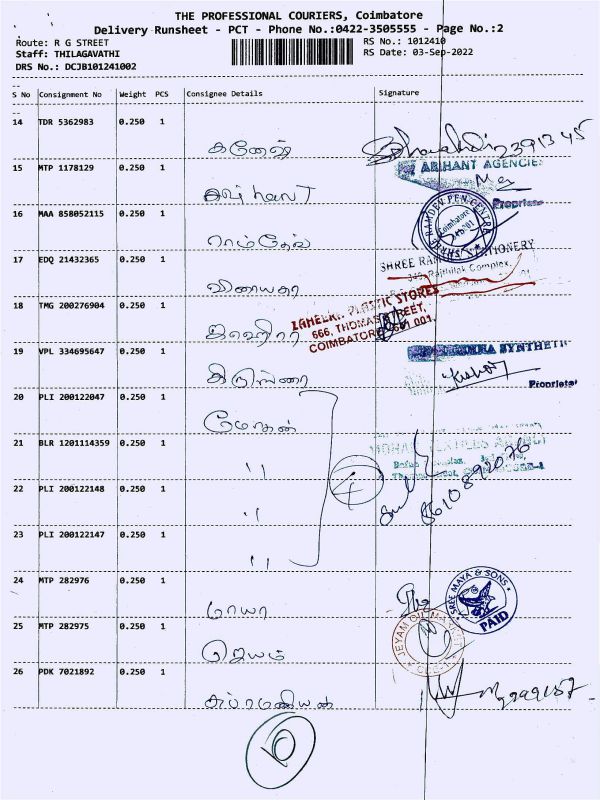 THE PROFESSIONAL COURIERS, Coimbatore
Delivery Runsheet - PCT - Phone No.:0422-3505555 - Page No.:2
Route: R G STREET RS No.: 1012410
Staff: THILAGAVATHI RS Date: 03-Sep-2022
DRS No.: DCJB101241002
S No Consignment No Weight PCS Consignee Details Signature
14 TDR 5362983 0.250 1
கணேஷ்
15 MTP 1178129 0.250 1
ARIHANT AGENCIES
Proprietor
16 MAA 858052115 0.250 1
ராம்தேவ்
SHREE RAMDEV PEN CENTRE
Coimbatore
17 EDQ 21432365 0.250 1
விநாயகா
STATIONERY
Rajthilak Complex,
18 TMG 200276904 0.250 1
PLASTIC STORES
666, THOMAS STREET,
COIMBATORE - 641 001.
19 VPL 334695647 0.250 1
கிருஷ்ணா
SYNTHETIC
Kishor
Proprietor
20 PLI 200122047 0.250 1
மோகன்
21 BLR 1201114359 0.250 1
"
4
8610892076
22 PLI 200122148 0.250 1
"
23 PLI 200122147 0.250 1
"
24 MTP 282976 0.250 1
மாயா
SREE MAYA & SONS
PAID
25 MTP 282975 0.250 1
ஜெயம்
JEYAM OIL
26 PDK 7021892 0.250 1
சுப்ரமணியன்
10